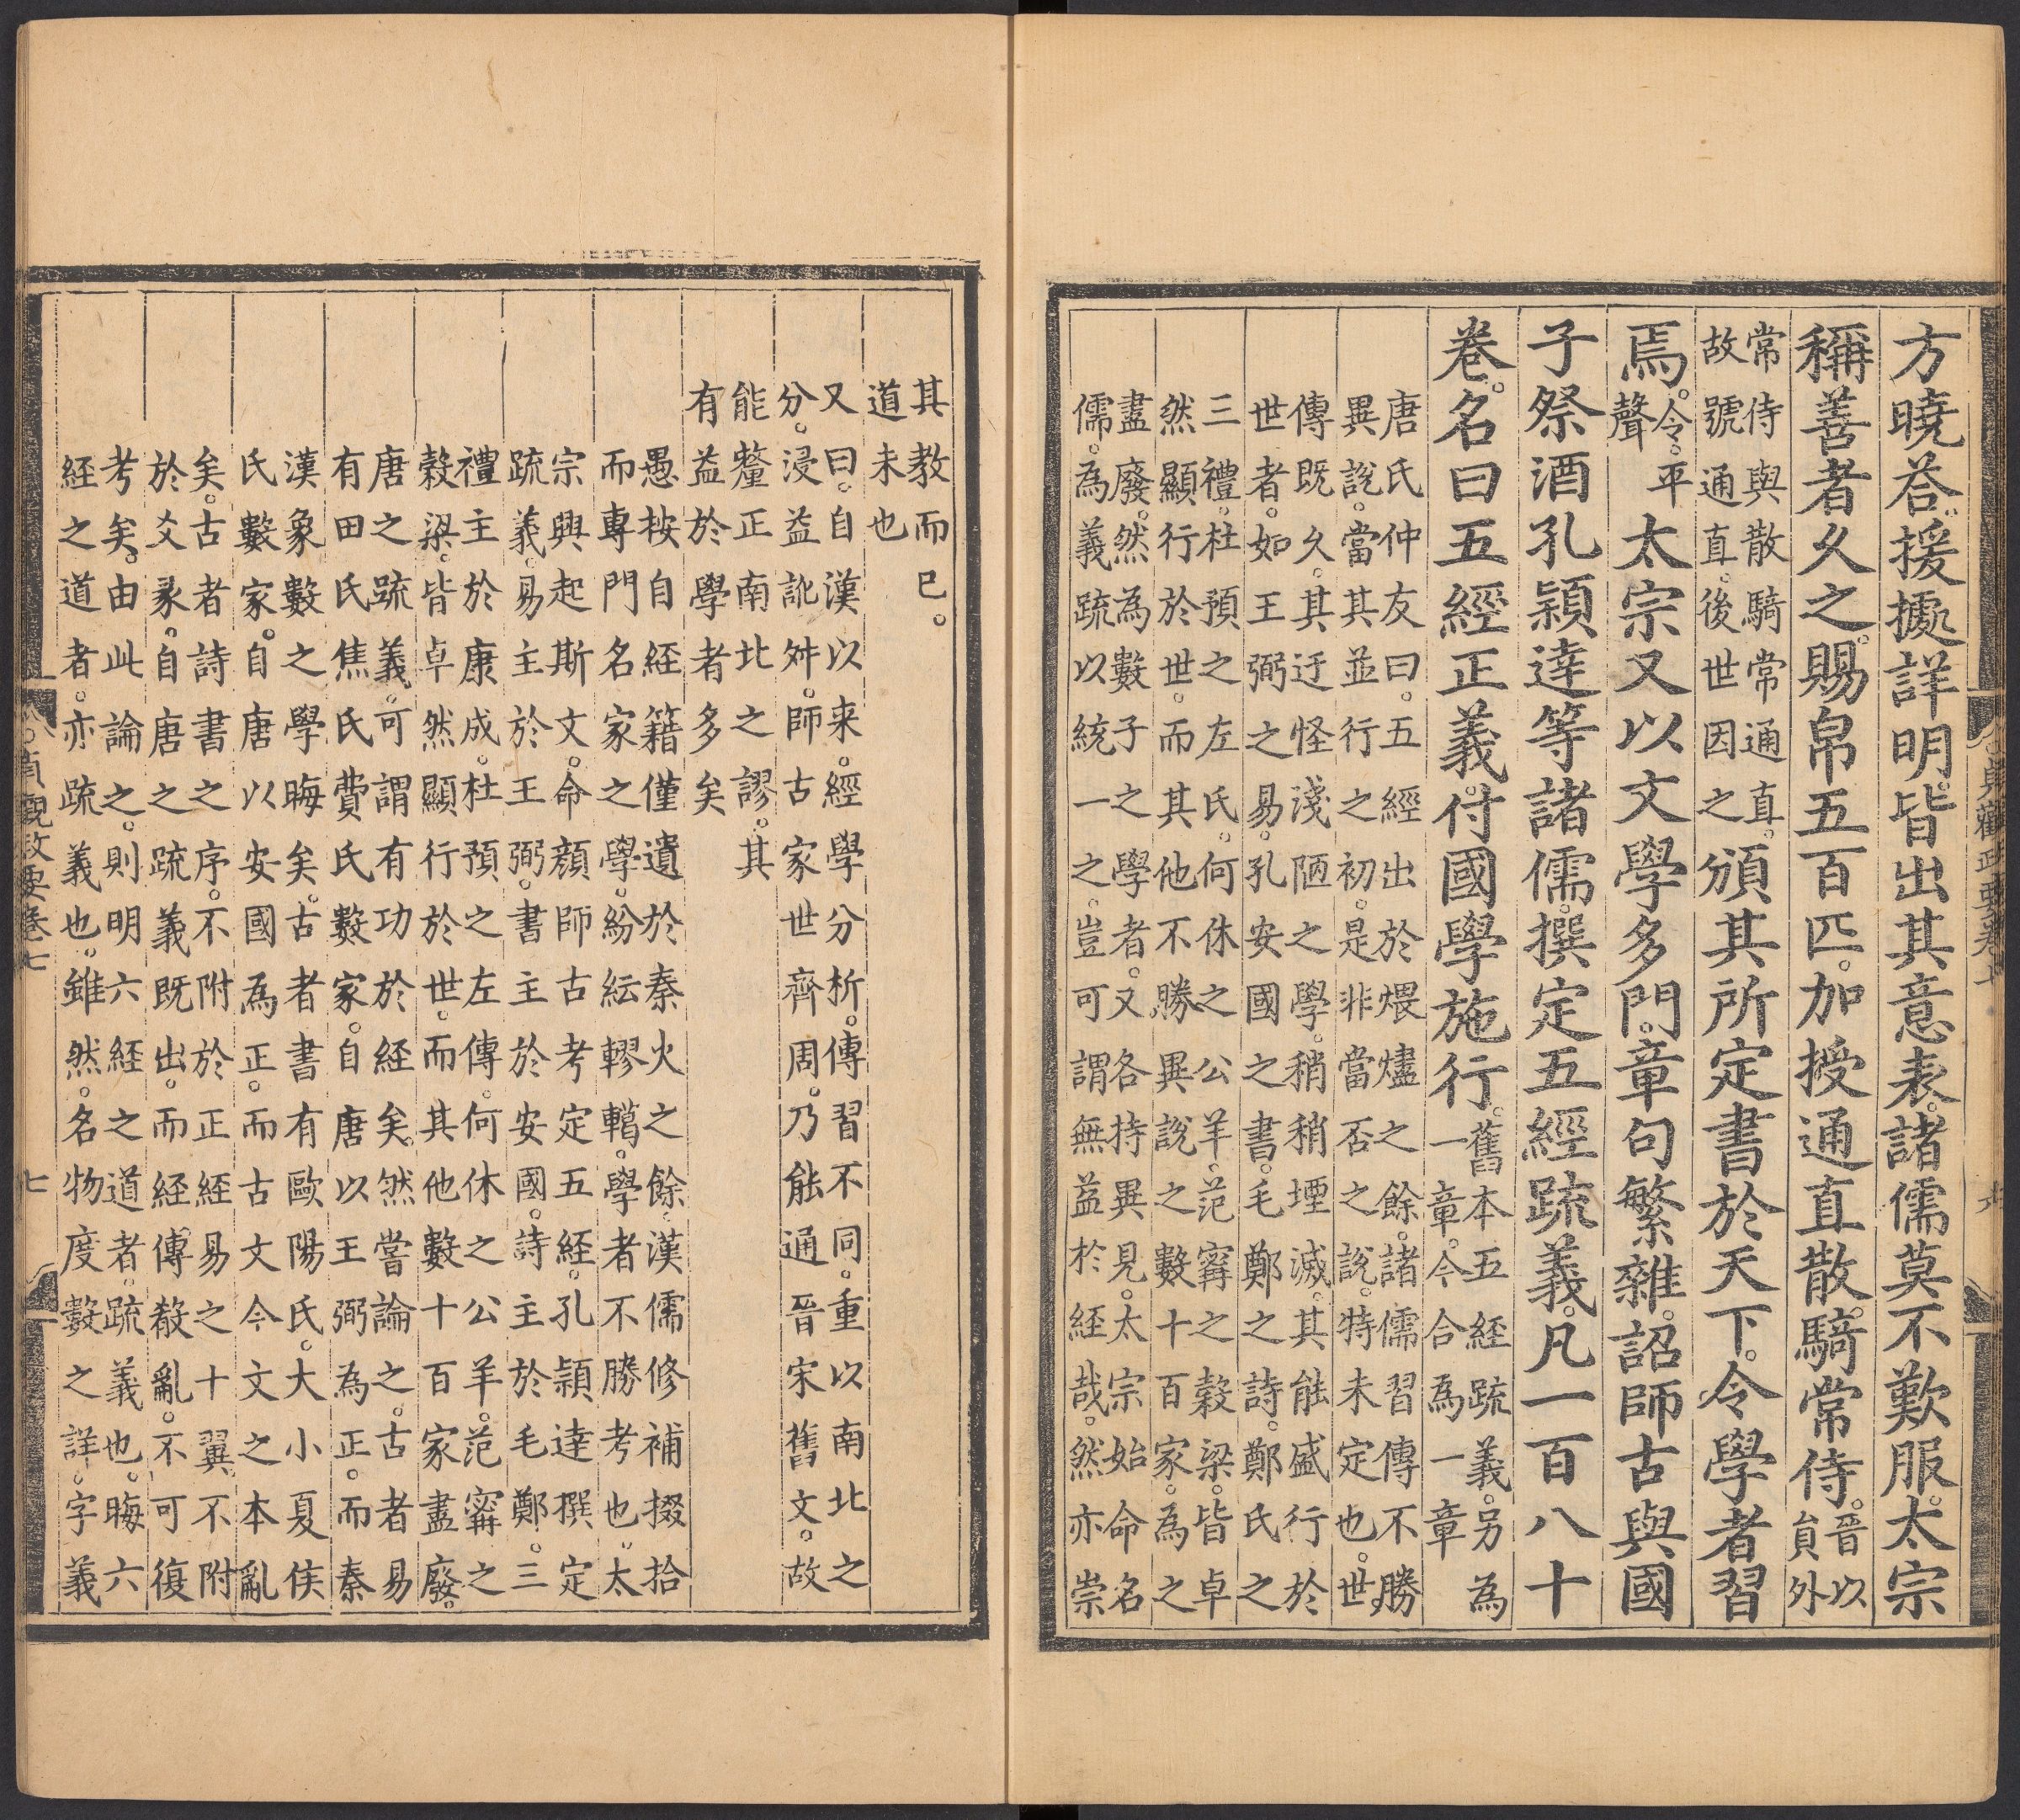 方曉荅援據詳明皆出其意表諸儒莫不歎服太宗
稱善者久之賜帛五百匹加授通直散騎常侍晉以
員外
常侍與散騎常通直
故號通直後世因之
頒其所定書於天下令學者習
焉令平
聲
太宗又以文學多門章句繁雜詔師古與國
子祭酒孔穎達等諸儒撰定五經疏義凡一百八十
卷名曰五經正義付國學施行舊本五經疏義另為
一章今合為一章
唐氏仲友曰五經出於煨燼之餘諸儒習傳不勝
異說當其並行之初是非當否之說特未定也世
傳既久其迂怪淺陋之學稍稍堙滅其能盛行於
世者如王弼之易孔安國之書毛鄭之詩鄭氏之
三禮杜預之左氏何休之公羊范甯之穀梁皆卓
然顯行於世而其他不勝異說之數十百家為之
盡廢然為數子之學者又各持異見太宗始命名
儒為義疏以統一之豈可謂無益於經哉然亦崇
其教而已
道未也
又曰自漢以来經學分析傳習不同重以南北之
分浸益訛舛師古家世齊周乃能通晉宋舊文故
能釐正南北之謬其
有益於學者多矣
愚按自經籍僅遺於秦火之餘漢儒修補掇拾
而專門名家之學紛紜轇轕學者不勝考也太
宗興起斯文命顏師古考定五經孔穎達撰定
疏義易主於王弼書主於安國詩主於毛鄭三
禮主於康成杜預之左傳何休之公羊范甯之
穀梁皆卓然顯行於世而其他數十百家盡廢
唐之疏義可謂有功於經矣然嘗論之古者易
有田氏焦氏費氏數家自唐以王弼為正而秦
漢象數之學晦矣古者書有歐陽氏大小夏侯
氏數家自唐以安國為正而古文今文之本亂
矣古者詩書之序不附於正經易之十翼不附
於爻彖自唐之疏義既出而經傳殽亂不可復
考矣由此論之則明六經之道者疏義也晦六
經之道者亦疏義也雖然名物度數之詳字義
貞觀政要卷七
六
貞觀政要卷七
七